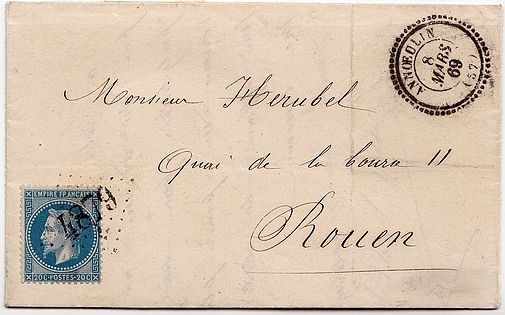 ANNŒULLIN
8
MARS
69
(57)
Monsieur Herubel
Quai de la bourse 11
Rouen
EMPIRE FRANÇAIS
20C·POSTES·20C